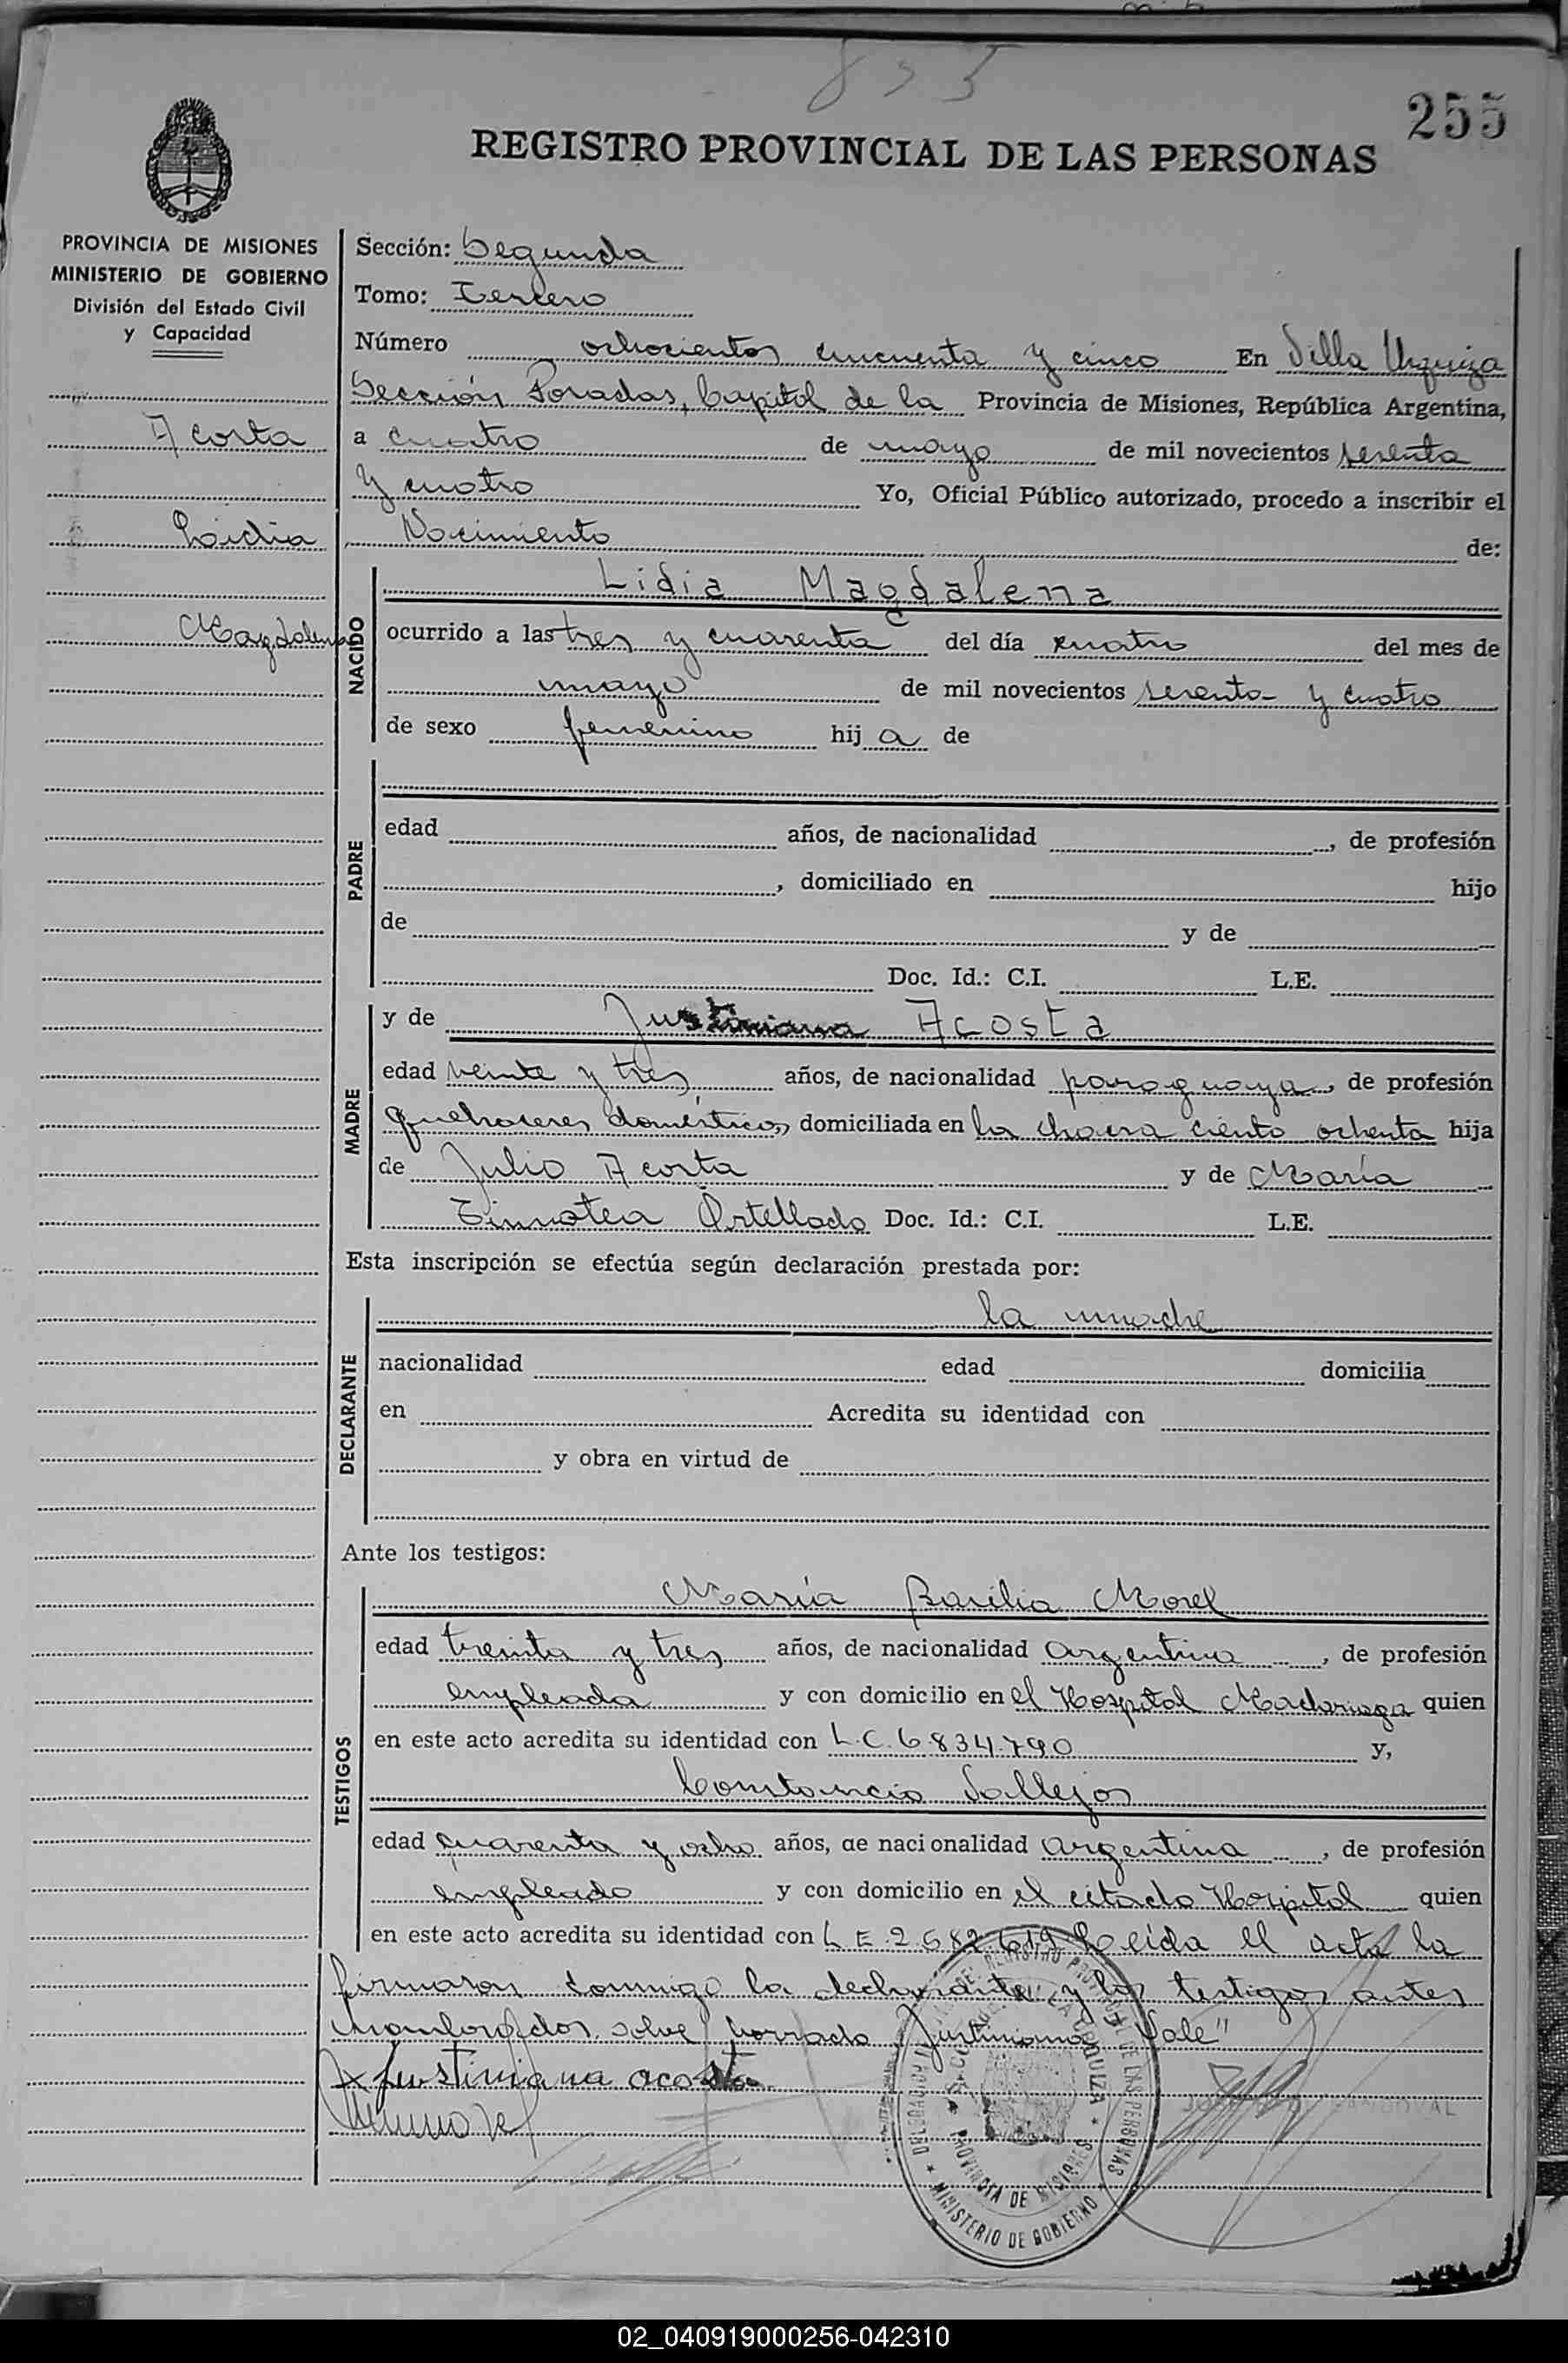 855
255
REGISTRO PROVINCIAL DE LAS PERSONAS
PROVINCIA DE MISIONES
MINISTERIO DE GOBIERNO
División del Estado Civil
y Capacidad
Acosta
Lidia
Magdalena
Sección: Segunda
Tomo: Tercero
Número ochocientos cincuenta y cinco En Villa Urquiza
Sección Posadas, Capital de la Provincia de Misiones, República Argentina,
a cuatro de mayo de mil novecientos sesenta
y cuatro Yo, Oficial Público autorizado, procedo a inscribir el
Nacimiento de:
NACIDO
Lidia Magdalena
ocurrido a las tres y cuarenta del día cuatro del mes de
mayo de mil novecientos sesenta y cuatro
de sexo femenino hij a de
PADRE
edad años, de nacionalidad , de profesión
, domiciliado en hijo
de y de
Doc. Id.: C.I. L.E.
MADRE
y de Justiniana Acosta
edad veinte y tres años, de nacionalidad paraguaya, de profesión
quehaceres domésticos, domiciliada en la chacra ciento ochenta hija
de Julio Acosta y de María
Timotea Ortellado Doc. Id.: C.I. L.E.
Esta inscripción se efectúa según declaración prestada por:
DECLARANTE
la madre
nacionalidad edad domicilia
en Acredita su identidad con
y obra en virtud de
Ante los testigos:
TESTIGOS
María Basilia Morel
edad treinta y tres años, de nacionalidad argentina, de profesión
empleada y con domicilio en el Hospital Madariaga quien
en este acto acredita su identidad con L.C. 6.834.790 y,
Constancio Vallejos
edad cuarenta y ocho años, de nacionalidad argentina, de profesión
empleado y con domicilio en el citado Hospital quien
en este acto acredita su identidad con L E 2.682.619 Leída el acta la
firmaron conmigo la declarante y los testigos antes
nombrados. sobre borrado "Justiniana" Vale"
x Justiniana acosta
SANDOVAL
PROVINCIA DE MISIONES
MINISTERIO DE GOBIERNO
02_040919000256-042310